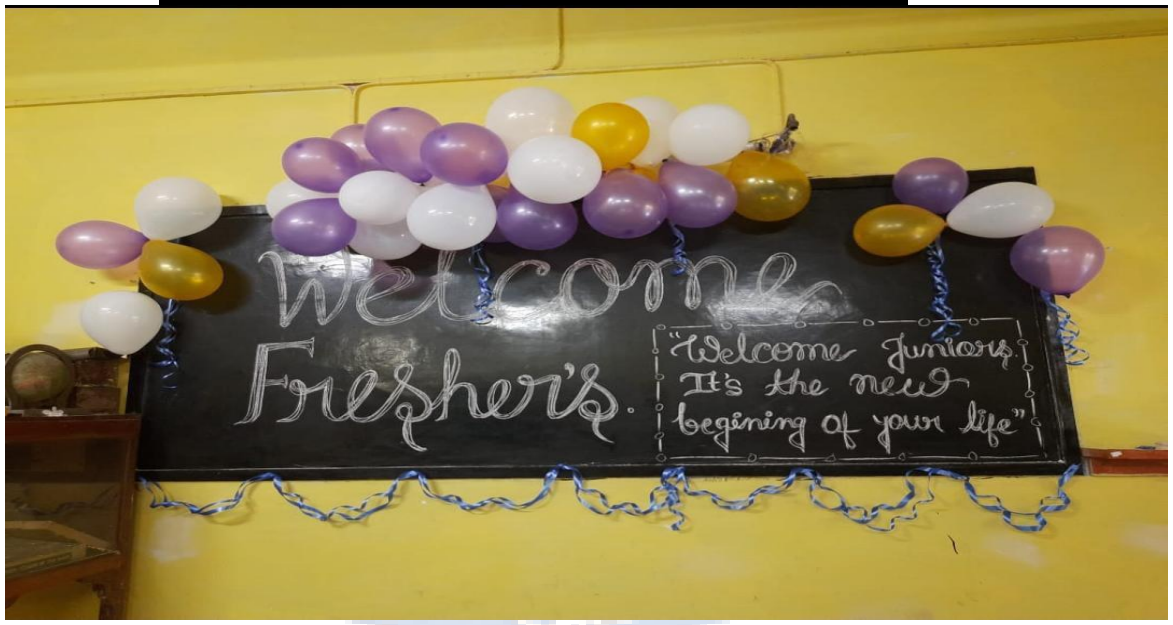 Welcome
Fresher's.
"Welcome Juniors.
It's the new
begining of your life"